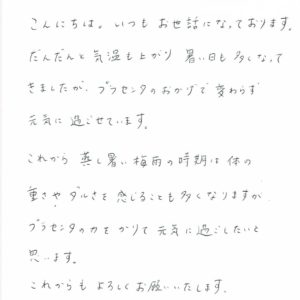 こんにちは。いつもお世話になっております。
だんだんと気温も上がり 暑い日も多くなって
きましたが、プラセンタのおかげで変わらず
元気に過ごせています。
これから 蒸し暑い梅雨の時期は体の
重さや ダルさを感じることも多くなりますが
プラセンタの力をかりて元気に過ごしたいと
思います。
これからも よろしくお願いいたします。